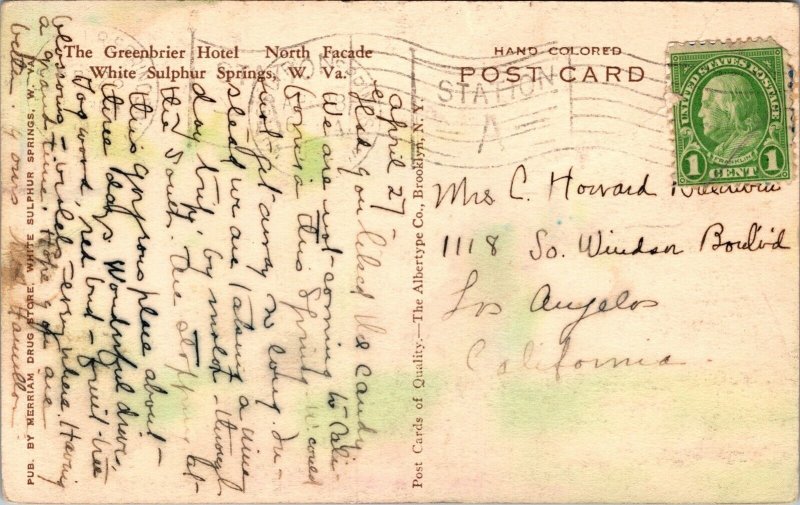 The Greenbrier Hotel North Facade
White Sulphur Springs, W. Va.
HAND COLORED
POST CARD
STATION
A
UNITED STATES POSTAGE
FRANKLIN
1 CENT 1
Mrs C. Howard Baldwin
1118 So. Windsor Boul'v'd
Los Angelos
California
Post Cards of Quality.—The Albertype Co., Brooklyn, N. Y.
PUB. BY MERRIAM DRUG STORE, WHITE SULPHUR SPRINGS, W. VA.
April 27 -
Glad you liked the candy
We are not coming to Cali-
fornia this Spring. W could
not get away so long. In-
stead we are taking a nine
day trip by motor - through
the South. Are stopping at
this gorgeous place about -
three days. Wonderful drive,
Dogwood, red bud - fruit-tree
blossoms - violets everywhere. Having
a grand time. Hope you are
better. Yours